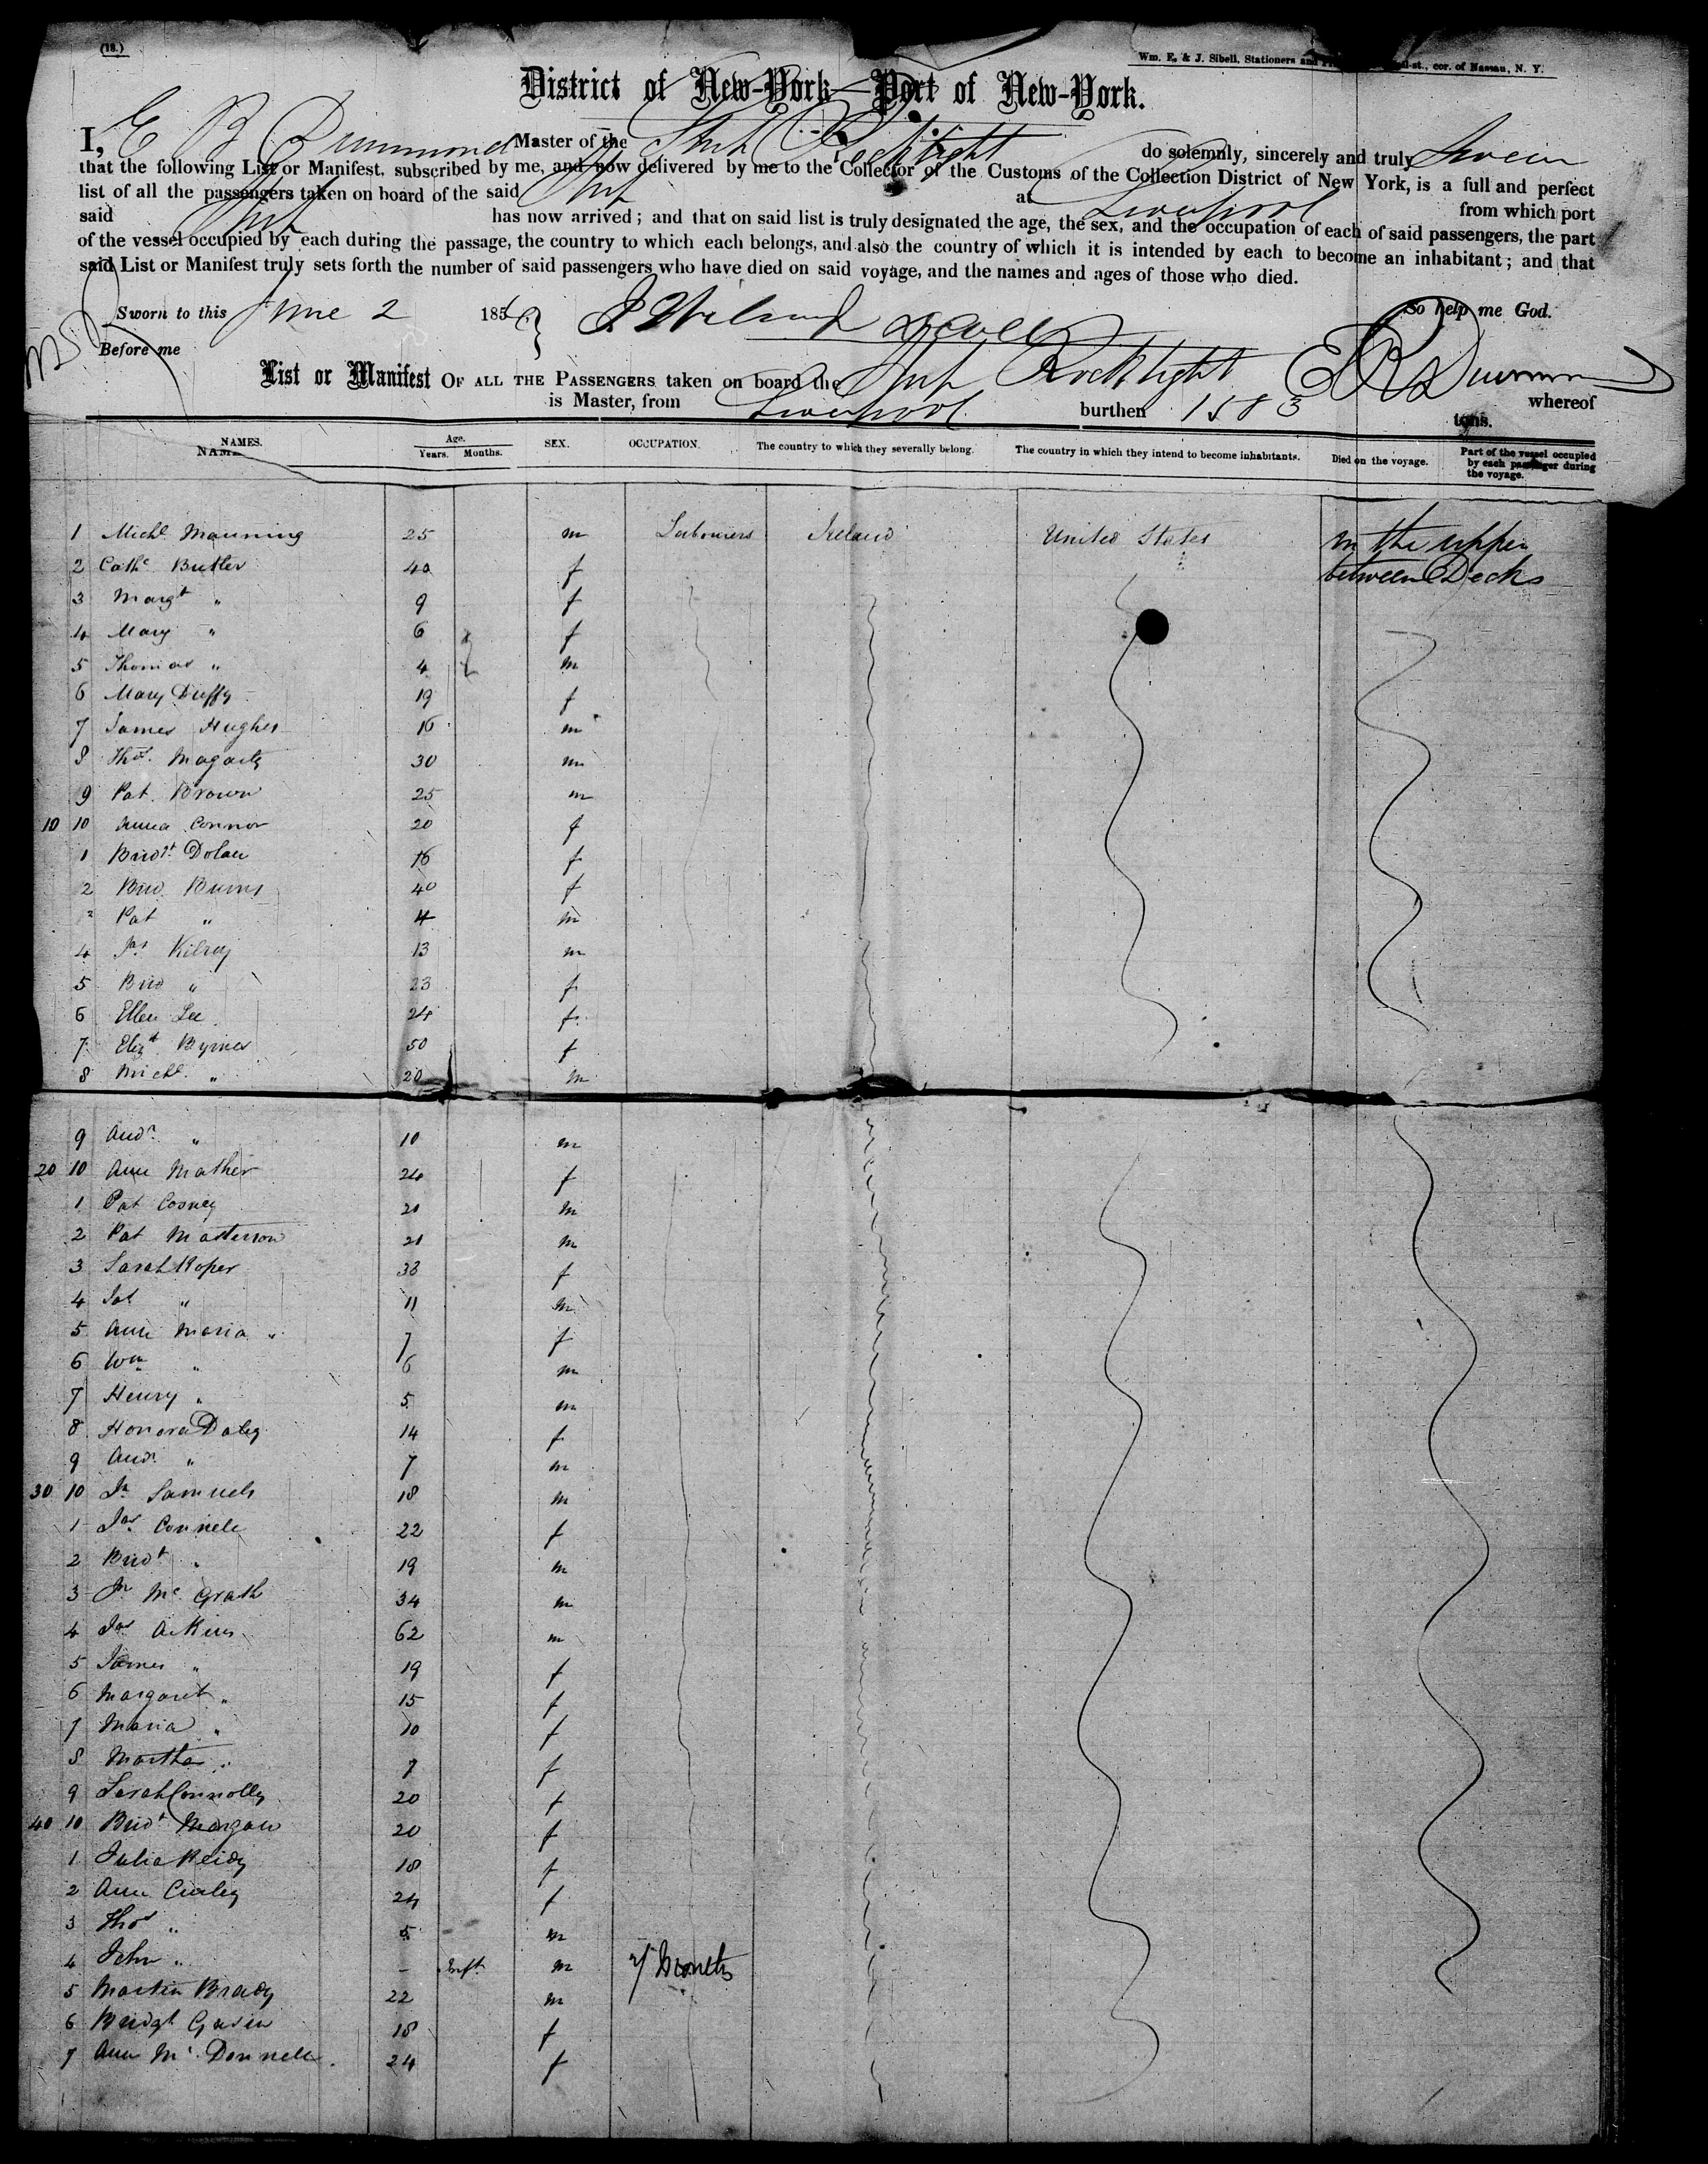 (18.)
Wm. E. & J. Sibell, Stationers and cor. of Nassau, N. Y.
District of New-York—Port of New-York.
I, E B Drummond Master of the Ship Rock Light do solemnly, sincerely and truly Swear
that the following List or Manifest, subscribed by me, and now delivered by me to the Collector of the Customs of the Collection District of New York, is a full and perfect
list of all the passengers taken on board of the said Ship at Liverpool from which port
said Ship has now arrived; and that on said list is truly designated the age, the sex, and the occupation of each of said passengers, the part
of the vessel occupied by each during the passage, the country to which each belongs, and also the country of which it is intended by each to become an inhabitant; and that
said List or Manifest truly sets forth the number of said passengers who have died on said voyage, and the names and ages of those who died.
Sworn to this June 2 185 So help me God.
Before me
List or Manifest OF ALL THE PASSENGERS taken on board the Ship Rock Light whereof
E B Drummond
is Master, from Liverpool burthen 1583 tons.
NAMES. Age. Years. Months. SEX. OCCUPATION. The country to which they severally belong. The country in which they intend to become inhabitants. Died on the voyage. Part of the vessel occupied by each passenger during the voyage.
1 Michl Manning 25 m Labourers Ireland United States in the upper
2 Cathe Butler 40 f between Decks
3 Margt " 9 f
4 Mary " 6 f
5 Thomas " 4 m
6 Mary Duffy 19 f
7 James Hughes 16 m
8 Thos. Magarty 30 m
9 Pat Brown 25 m
10 10 Anna Connor 20 f
1 Bridt. Dolan 16 f
2 Brid Burns 40 f
3 Pat " 4 m
4 Jas Kilroy 13 m
5 Brid " 23 f
6 Ellen Lee 24 f
7 Elizt Byrnes 50 f
8 Michl. " 20 m
9 Andw " 10 m
20 10 Ann Mather 24 f
1 Pat Cosney 21 m
2 Pat Matterson 21 m
3 Sarah Roper 33 f
4 " 11 m
5 Ann Maria " 7 f
6 Wm " 6 m
7 Henry " 5 m
8 Honora Daley 14 f
9 Andw " 7 m
30 10 Jn Samuels 18 m
1 Jas. Connell 22 f
2 Bridt " 19 m
3 Jn Mc Grath 34 m
4 Jas Aikins 62 m
5 James " 19 f
6 Margaret " 15 f
7 Maria " 10 f
8 Martha " 7 f
9 Sarah Connolly 20 f
40 10 Bridt Morgan 20 f
1 Julia Reidy 18 f
2 Ann Curley 24 f
3 Thos " 5 m
4 John " - Inft m 7 Months
5 Martin Brady 22 m
6 Bridgt Gavin 18 f
7 Ann Mc Donnell 24 f